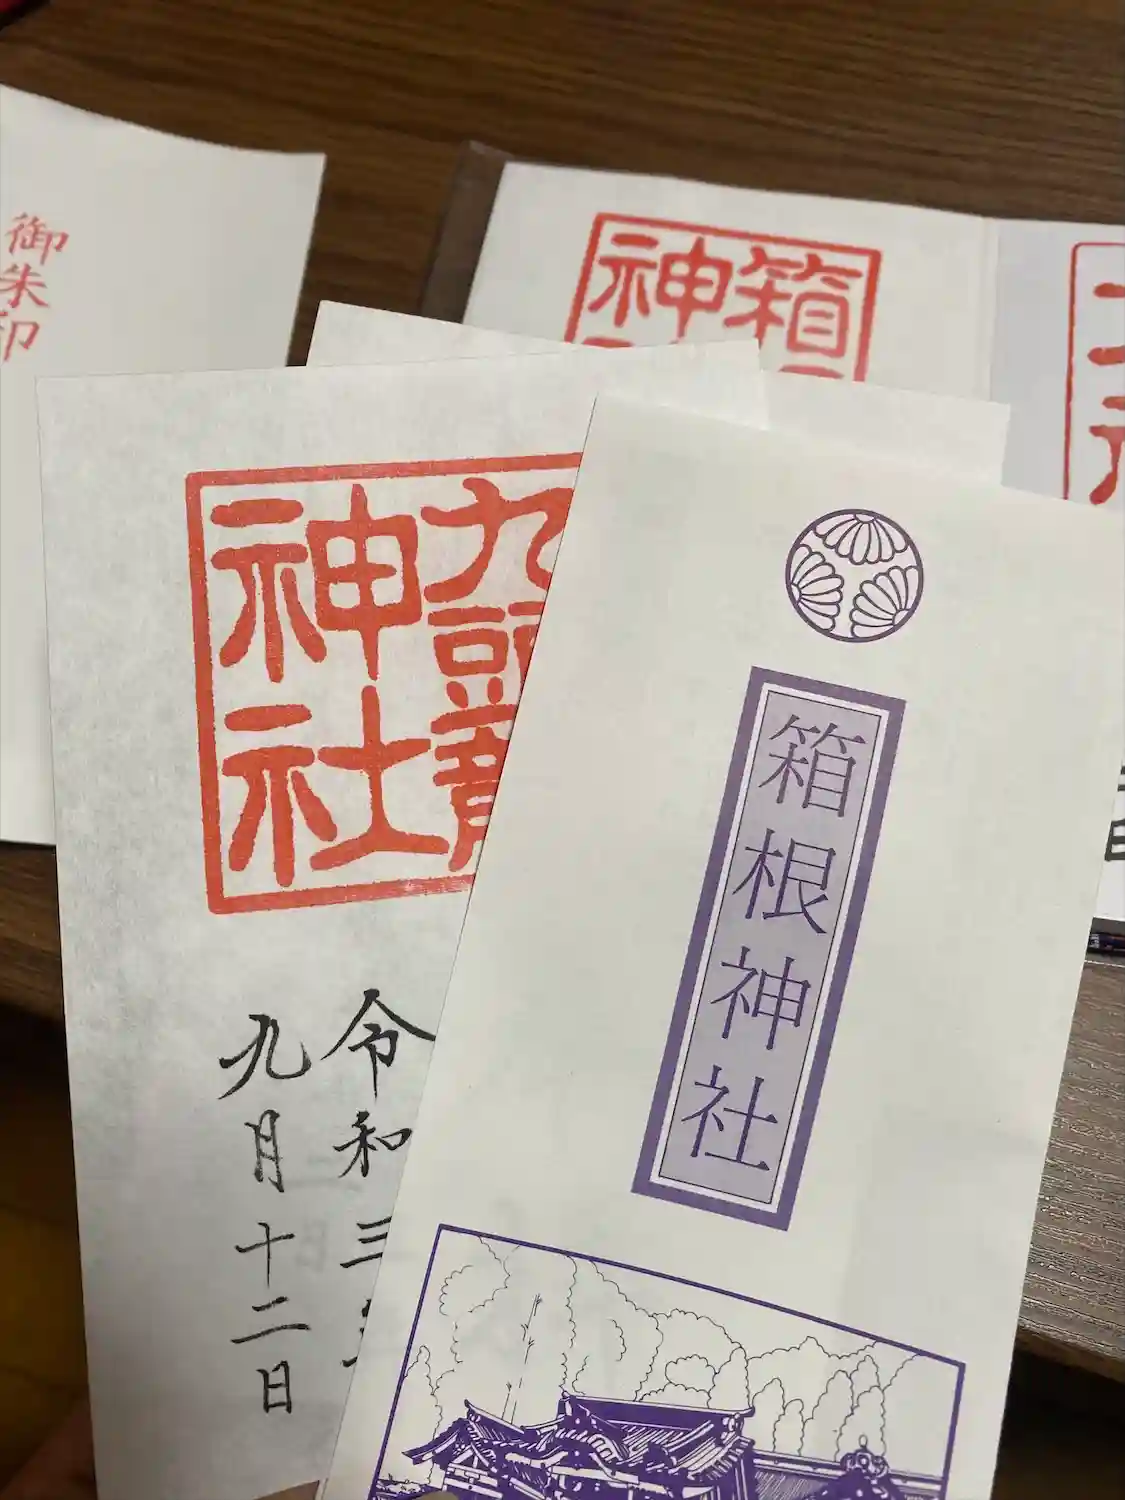 御朱印
箱
神
九頭龍
神社
令和三年
九月十二日
箱根神社